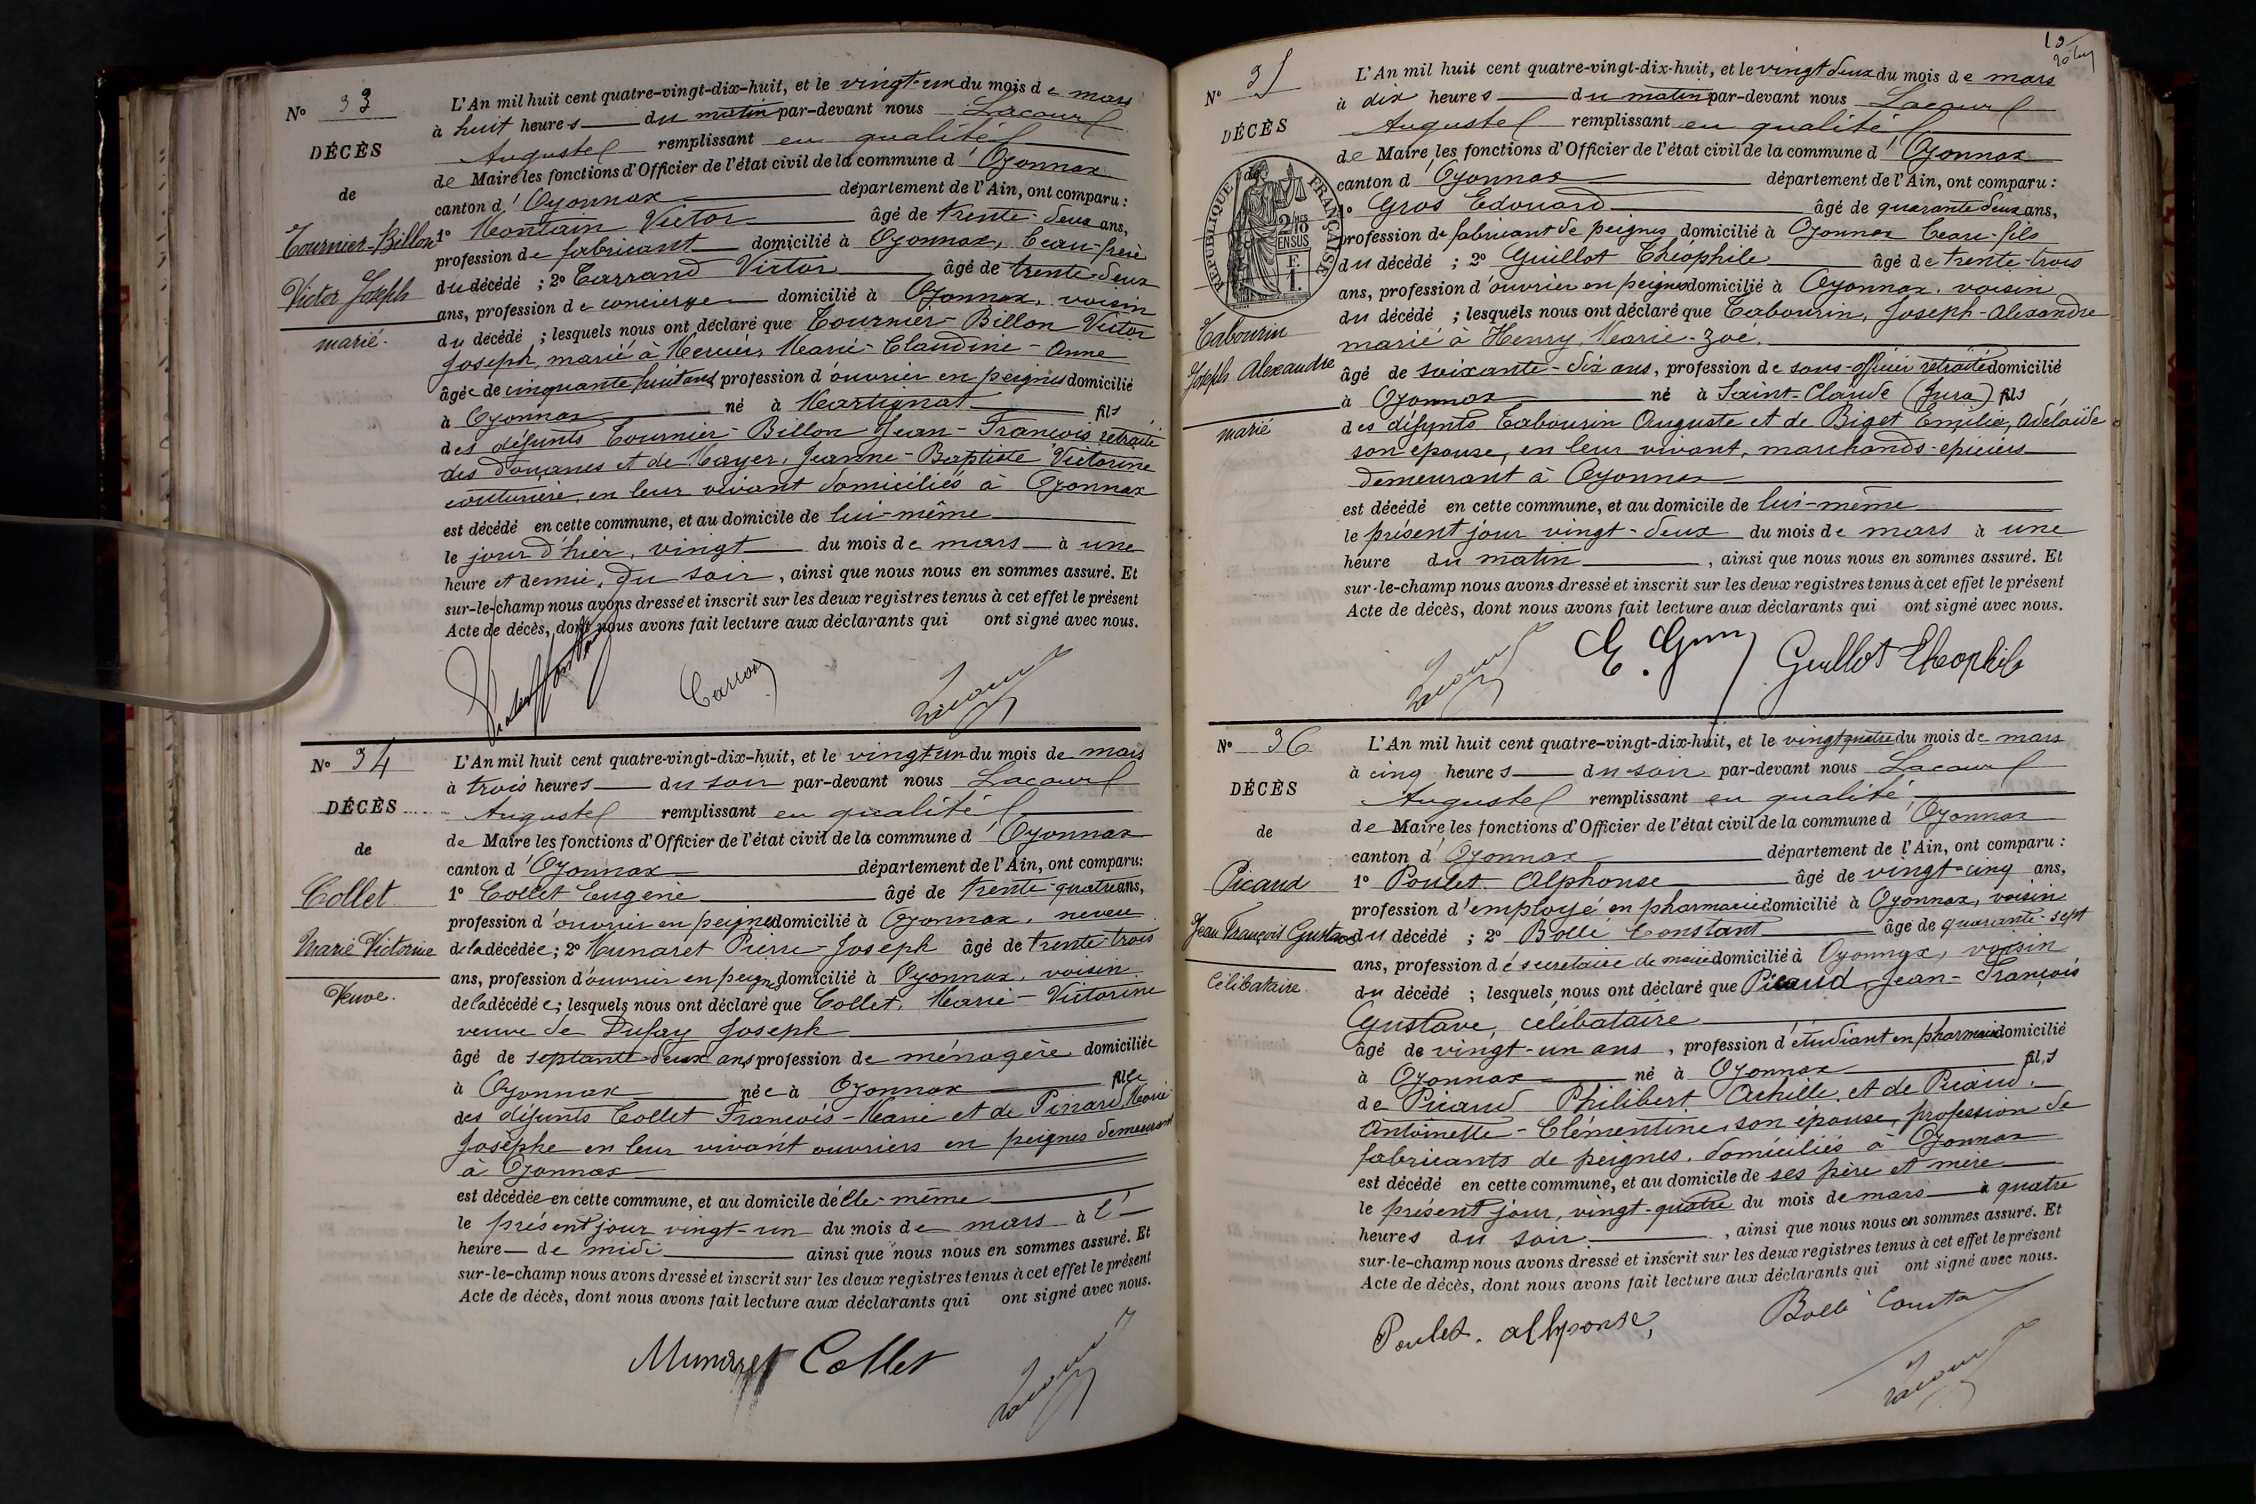 N° 33
DÉCÈS
de
Tournier-Billon
Victor Joseph
marié.
L'An mil huit cent quatre-vingt-dix-huit, et le vingt-un du mois de mars
à huit heures du matin par-devant nous Lacour
Auguste remplissant en qualité
de Maire les fonctions d'Officier de l'état civil de la commune d'Oyonnax
canton d'Oyonnax département de l'Ain, ont comparu :
1° Montain Victor âgé de trente-deux ans,
profession de fabricant domicilié à Oyonnax, beau-frère
du décédé ; 2° Carrand Victor âgé de trente-deux
ans, profession de concierge domicilié à Oyonnax, voisin
du décédé ; lesquels nous ont déclaré que Tournier-Billon Victor
Joseph, marié à Mercier, Marie-Claudine-Anne
âgé de cinquante huit ans profession d'ouvrier en peignes domicilié
à Oyonnax né à Martignat fils
des défunts Tournier-Billon Jean-François retraité
des douanes et de Mayer, Jeanne-Baptiste Victorine
couturière, en leur vivant domiciliés à Oyonnax
est décédé en cette commune, et au domicile de lui-même
le jour d'hier, vingt du mois de mars à une
heure et demie, du soir, ainsi que nous nous en sommes assuré. Et
sur-le-champ nous avons dressé et inscrit sur les deux registres tenus à cet effet le présent
Acte de décès, dont nous avons fait lecture aux déclarants qui ont signé avec nous.
Carrand Lacour
N° 34
DÉCÈS
de
Collet
Marie Victorine
Veuve.
L'An mil huit cent quatre-vingt-dix-huit, et le vingt un du mois de mars
à trois heures du soir par-devant nous Lacour
Auguste remplissant en qualité
de Maire les fonctions d'Officier de l'état civil de la commune d'Oyonnax
canton d'Oyonnax département de l'Ain, ont comparu :
1° Collet Eugène âgé de trente-quatre ans,
profession d'ouvrier en peignes domicilié à Oyonnax, neveu
de la décédée ; 2° Munaret Pierre-Joseph âgé de trente-trois
ans, profession d'ouvrier en peignes domicilié à Oyonnax, voisin
de la décédée ; lesquels nous ont déclaré que Collet, Marie-Victorine
veuve de Dufay Joseph
âgé de septante-deux ans profession de ménagère domiciliée
à Oyonnax née à Oyonnax fille
des défunts Collet François-Marie et de Pinard, Marie
Josèphe en leur vivant ouvriers en peignes demeurant
à Oyonnax
est décédée en cette commune, et au domicile d'elle-même
le présent jour vingt-un du mois de mars à l'
heure de midi ainsi que nous nous en sommes assuré. Et
sur-le-champ nous avons dressé et inscrit sur les deux registres tenus à cet effet le présent
Acte de décès, dont nous avons fait lecture aux déclarants qui ont signé avec nous.
Munaret Collet Lacour
N° 35
DÉCÈS
de
RÉPUBLIQUE FRANÇAISE
2/10
EN SUS
F.
1.
Tabourin
Joseph Alexandre
marié
L'An mil huit cent quatre-vingt-dix-huit, et le vingt deux du mois de mars
à dix heures du matin par-devant nous Lacour
Auguste remplissant en qualité
de Maire les fonctions d'Officier de l'état civil de la commune d'Oyonnax
canton d'Oyonnax département de l'Ain, ont comparu :
1° Gros Edouard âgé de quarante deux ans,
profession de fabricant de peignes domicilié à Oyonnax beau-fils
du décédé ; 2° Guillot Théophile âgé de trente-trois
ans, profession d'ouvrier en peignes domicilié à Oyonnax, voisin
du décédé ; lesquels nous ont déclaré que Tabourin, Joseph-Alexandre
marié à Henry, Marie-Zoé.
âgé de soixante-dix ans, profession de sous-officier retraité domicilié
à Oyonnax né à Saint-Claude (Jura) fils
des défunts Tabourin Auguste et de Biget Emilie, Adélaïde
son épouse, en leur vivant, marchands-epiciers
demeurant à Oyonnax
est décédé en cette commune, et au domicile de lui-même
le présent jour vingt-deux du mois de mars à une
heure du matin, ainsi que nous nous en sommes assuré. Et
sur-le-champ nous avons dressé et inscrit sur les deux registres tenus à cet effet le présent
Acte de décès, dont nous avons fait lecture aux déclarants qui ont signé avec nous.
Lacour E. Gros Guillot Théophile
N° 36
DÉCÈS
de
Picaud
Jean François Gustave
Célibataire
L'An mil huit cent quatre-vingt-dix-huit, et le vingt quatre du mois de mars
à cinq heures du soir par-devant nous Lacour
Auguste remplissant en qualité
de Maire les fonctions d'Officier de l'état civil de la commune d'Oyonnax
canton d'Oyonnax département de l'Ain, ont comparu :
1° Poulet Alphonse âgé de vingt-cinq ans,
profession d'employé en pharmacie domicilié à Oyonnax, voisin
du décédé ; 2° Bollé Constant âgé de quarante-sept
ans, profession de secrétaire de mairie domicilié à Oyonnax, voisin
du décédé ; lesquels nous ont déclaré que Picaud, Jean-François
Gustave, célibataire
âgé de vingt-un ans, profession d'étudiant en pharmacie domicilié
à Oyonnax né à Oyonnax fils
de Picaud Philibert Achille et de Picaud,
Antoinette-Clémentine, son épouse, profession de
fabricants de peignes, domiciliés à Oyonnax
est décédé en cette commune, et au domicile de ses père et mère
le présent jour, vingt-quatre du mois de mars à quatre
heures du soir, ainsi que nous nous en sommes assuré. Et
sur-le-champ nous avons dressé et inscrit sur les deux registres tenus à cet effet le présent
Acte de décès, dont nous avons fait lecture aux déclarants qui ont signé avec nous.
Poulet. alhponse, Bollé Constant
Lacour